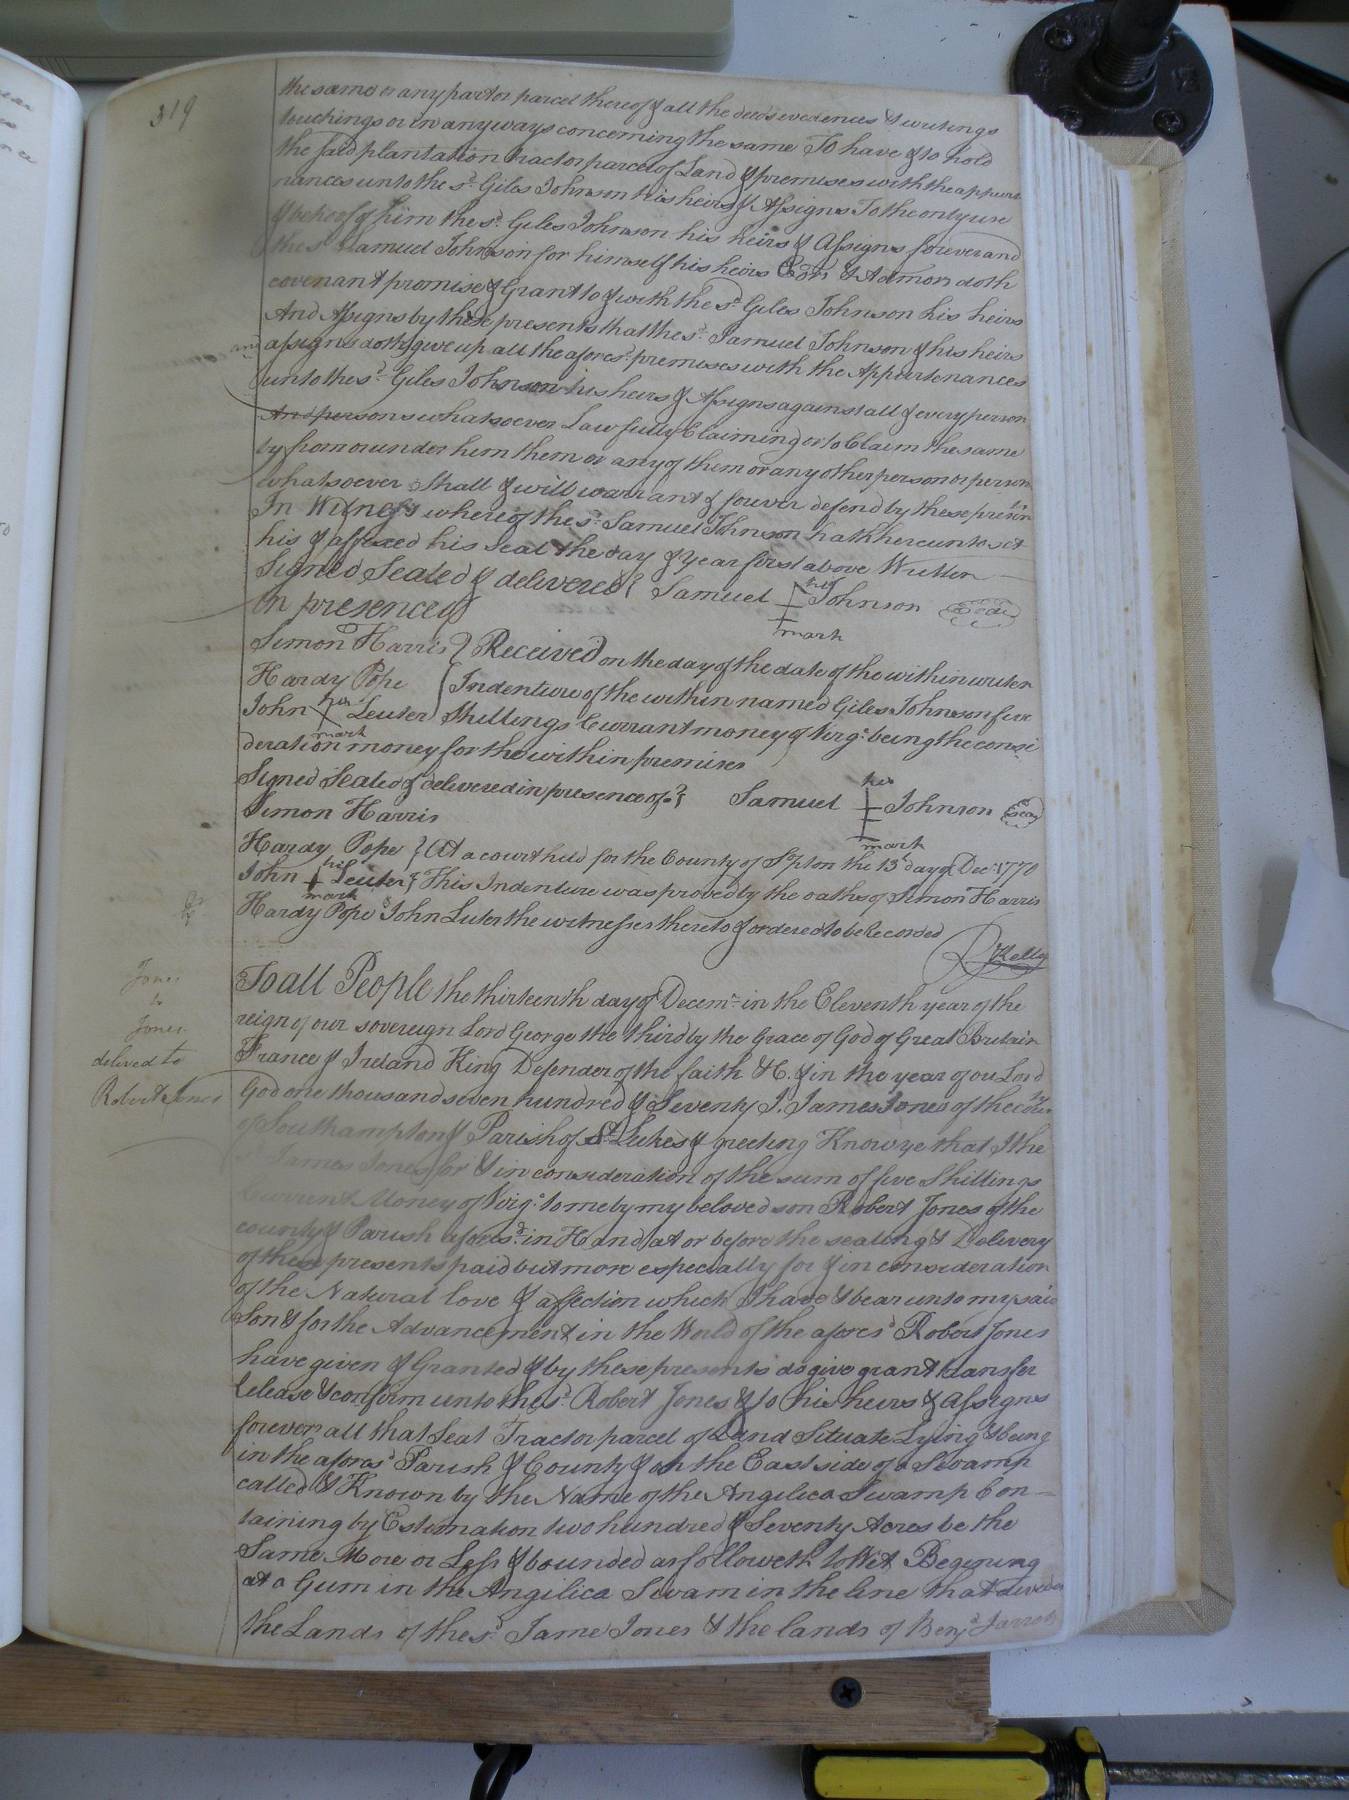 319
the same or any part or parcel thereof & all the deeds evedences & writings
touchings or in anyways concerning the same To have & to hold
the said plantation tract or parcel of Land & premises with the appurte
nances unto the sd. Giles Johnson his heirs & Assigns To the only use
& behoof of him the sd. Giles Johnson his heirs & Assigns forever and
the sd. Samuel Johnson for himself his heirs Exors & Admors doth
covenant promise & Grant to & with the sd. Giles Johnson his heirs
And Assigns by these presents that the sd. Samuel Johnson & his heirs
and assigns doth give up all the afores.d premises with the Appurtenances
unto the sd. Giles Johnson his heirs & Assigns against all & every person
And persons whatsoever Lawfully Claiming or to Claim the same
by from or under him them or any of them or any other person or persons
whatsoever Shall & will warrant & forever defend by these presents
In Witness whereof the sd. Samuel Johnson hath hereunto set
his & affixed his Seal the day & Year first above Written
Signed Sealed & delivered } Samuel his Johnson Seal
in presence of mark
Simon Harris } Received on the day of the date of the within writen
Hardy Pope Indenture of the within named Giles Johnson five
John his Leuter Shillings Currant money of Virga. being the consi
mark
deration money for the within premises
Signed Sealed & delivered in presence of } Samuel his Johnson Seal
Simon Harris mark
Hardy Pope } At a court held for the County of Sopton the 13th day of Decr. 1770
John his Leuter } This Indenture was proved by the oaths of Simon Harris
mark
Hardy Pope & John Luter the witnesses thereto & ordered to be Recorded
Kelly
Jones
to
Jones
delived to
Robert Jones
To all People the thirteenth day of Decemr. in the Eleventh year of the
reign of our sovereign Lord George the third by the Grace of God of Great Britain
France & Ireland King Defender of the faith &c. & in the year of ou Lord
God one thousand seven hundred & Seventy I. James Jones of the County
of Southampton & Parish of St. Lukes & greeting Know ye that I the
James Jones for & in consideration of the sum of five Shillings
Currant Money of Virga. to me by my beloved son Robert Jones of the
county & Parish afores.d in Hand at or before the sealing & Delivery
of these presents paid but more especially for & in consideration
of the Natural love & affection which I have & bear unto my said
Son & for the Advancement in the World of the afores.d Robert Jones
have given & Granted & by these presents do give grant transfer
release & confirm unto the sd. Robert Jones & to his heirs & Assigns
forever all that Seat Tract or parcel of Land Situate Lying & being
in the afores.d Parish & County & on the East side of a Swamp
called & Known by the Name of the Angelica Swamp Con-
taining by Estimation two hundred & Seventy Acres be the
Same More or Less & bounded as followeth to Wit Begining
at a Gum in the Angilica Swam in the line that devides
the Lands of the sd. Jame Jones & the lands of Benj.a Jarrell